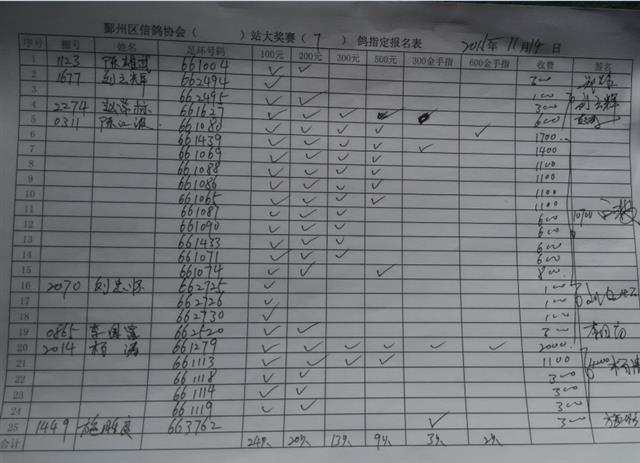 鄞州区信鸽协会( )站大奖赛(7)鸽指定报名表 2011年11月19日
序号 棚号 姓名 足环号码 100元 200元 300元 500元 300金手指 600金手指 收费 签名
1 1123 陈雄 661004 ✓ ✓ 300
2 1677 刘立辉 662494 ✓ 100
3 662495 ✓ ✓ 300 刘立辉
4 2274 661627 ✓ ✓ ✓ 600
5 0311 661080 ✓ ✓ ✓ ✓ ✓ 1700
6 661439 ✓ ✓ ✓ ✓ ✓ 1400
7 661069 ✓ ✓ ✓ ✓ 1100
8 661088 ✓ ✓ ✓ ✓ 1100
9 661086 ✓ ✓ ✓ ✓ 1100
10 661065 ✓ ✓ ✓ ✓ 1100
11 661087 ✓ ✓ ✓ 600 10700
12 661090 ✓ ✓ ✓ 600
13 661433 ✓ ✓ ✓ 600
14 661071 ✓ ✓ ✓ 600
15 661074 ✓ ✓ ✓ 800
16 2070 662725 ✓ 100
17 662726 ✓ 100
18 662730 ✓ 100
19 0865 李国富 662520 ✓ ✓ 300
20 2014 杨满 661279 ✓ ✓ ✓ ✓ ✓ ✓ 2000
21 661113 ✓ ✓ ✓ ✓ 1100 4000
22 661118 ✓ ✓ 300
23 661114 ✓ ✓ 300
24 661119 ✓ ✓ 300
25 1449 施 663762 ✓ 300
合计 24只 20只 13只 9只 3只 2只